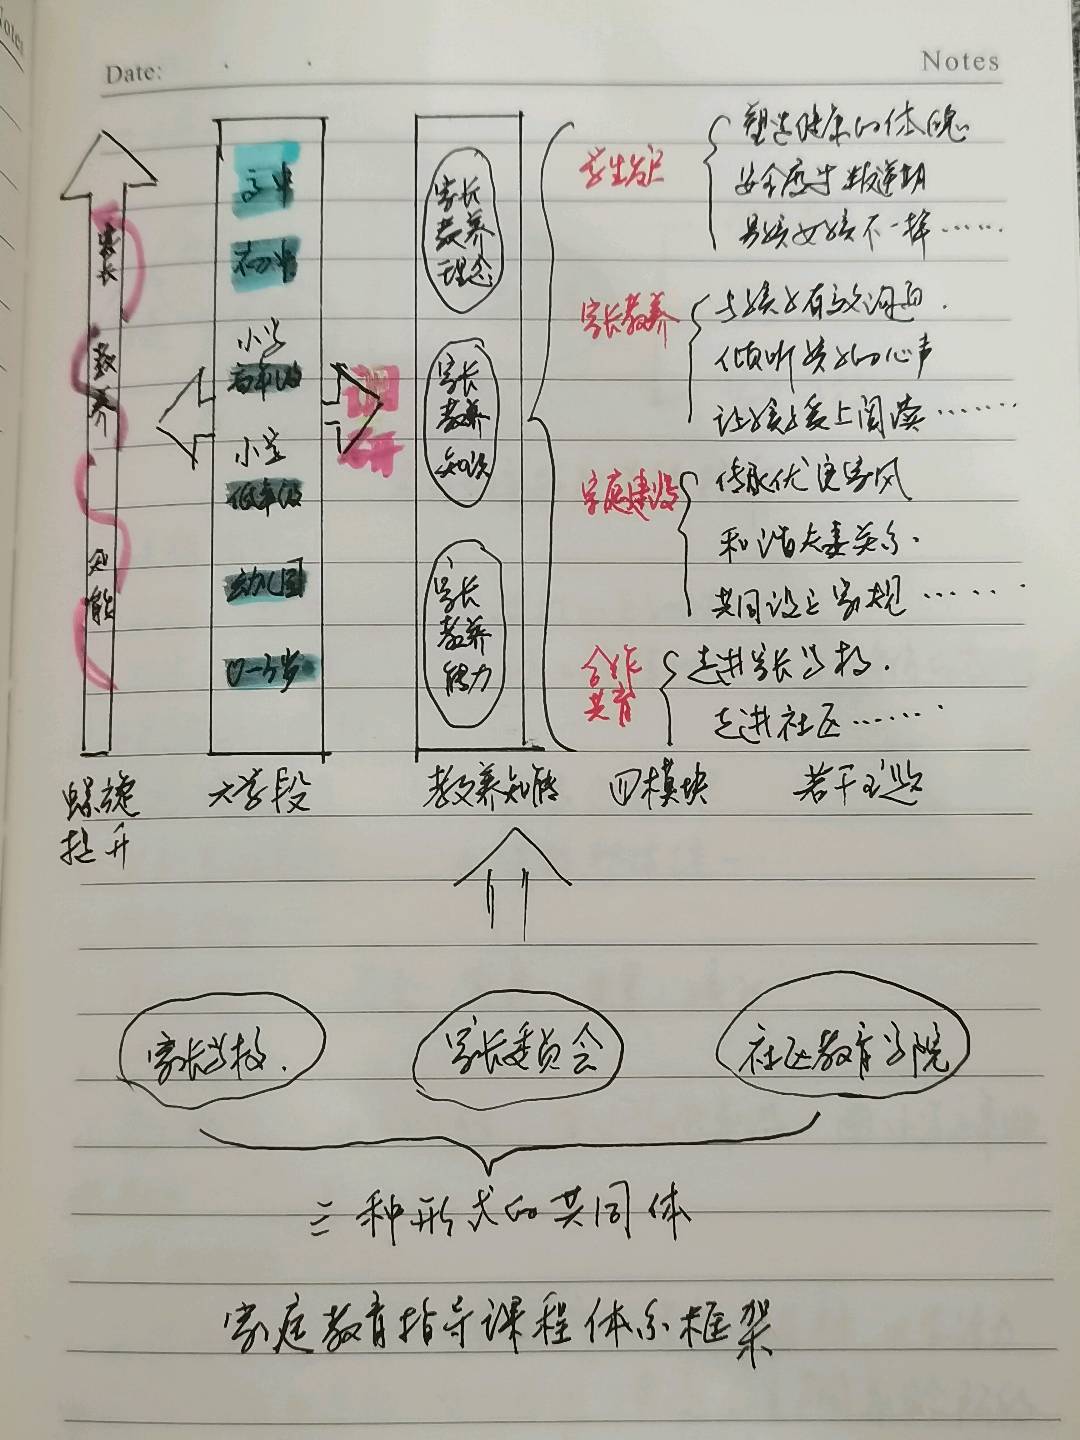 Notes
Date:
Notes
家长
教养
知能
螺旋
提升
高中
初中
小学
高年级
小学
低年级
幼儿园
0-3岁
六学段
调
研
家长
教养
理念
家长
教养
知识
家长
教养
能力
教养知能
学生发展
塑造健康的体魄
安全度过叛逆期
男孩女孩不一样……
家长教养
与孩子有效沟通.
倾听孩子的心声
让孩子爱上阅读……
家庭建设
传承优良家风
和谐夫妻关系.
共同设立家规……
合作
共育
走进家长学校.
走进社区……
四模块
若干主题
家长学校.
家长委员会
社区教育学院
三种形式的共同体
家庭教育指导课程体系框架